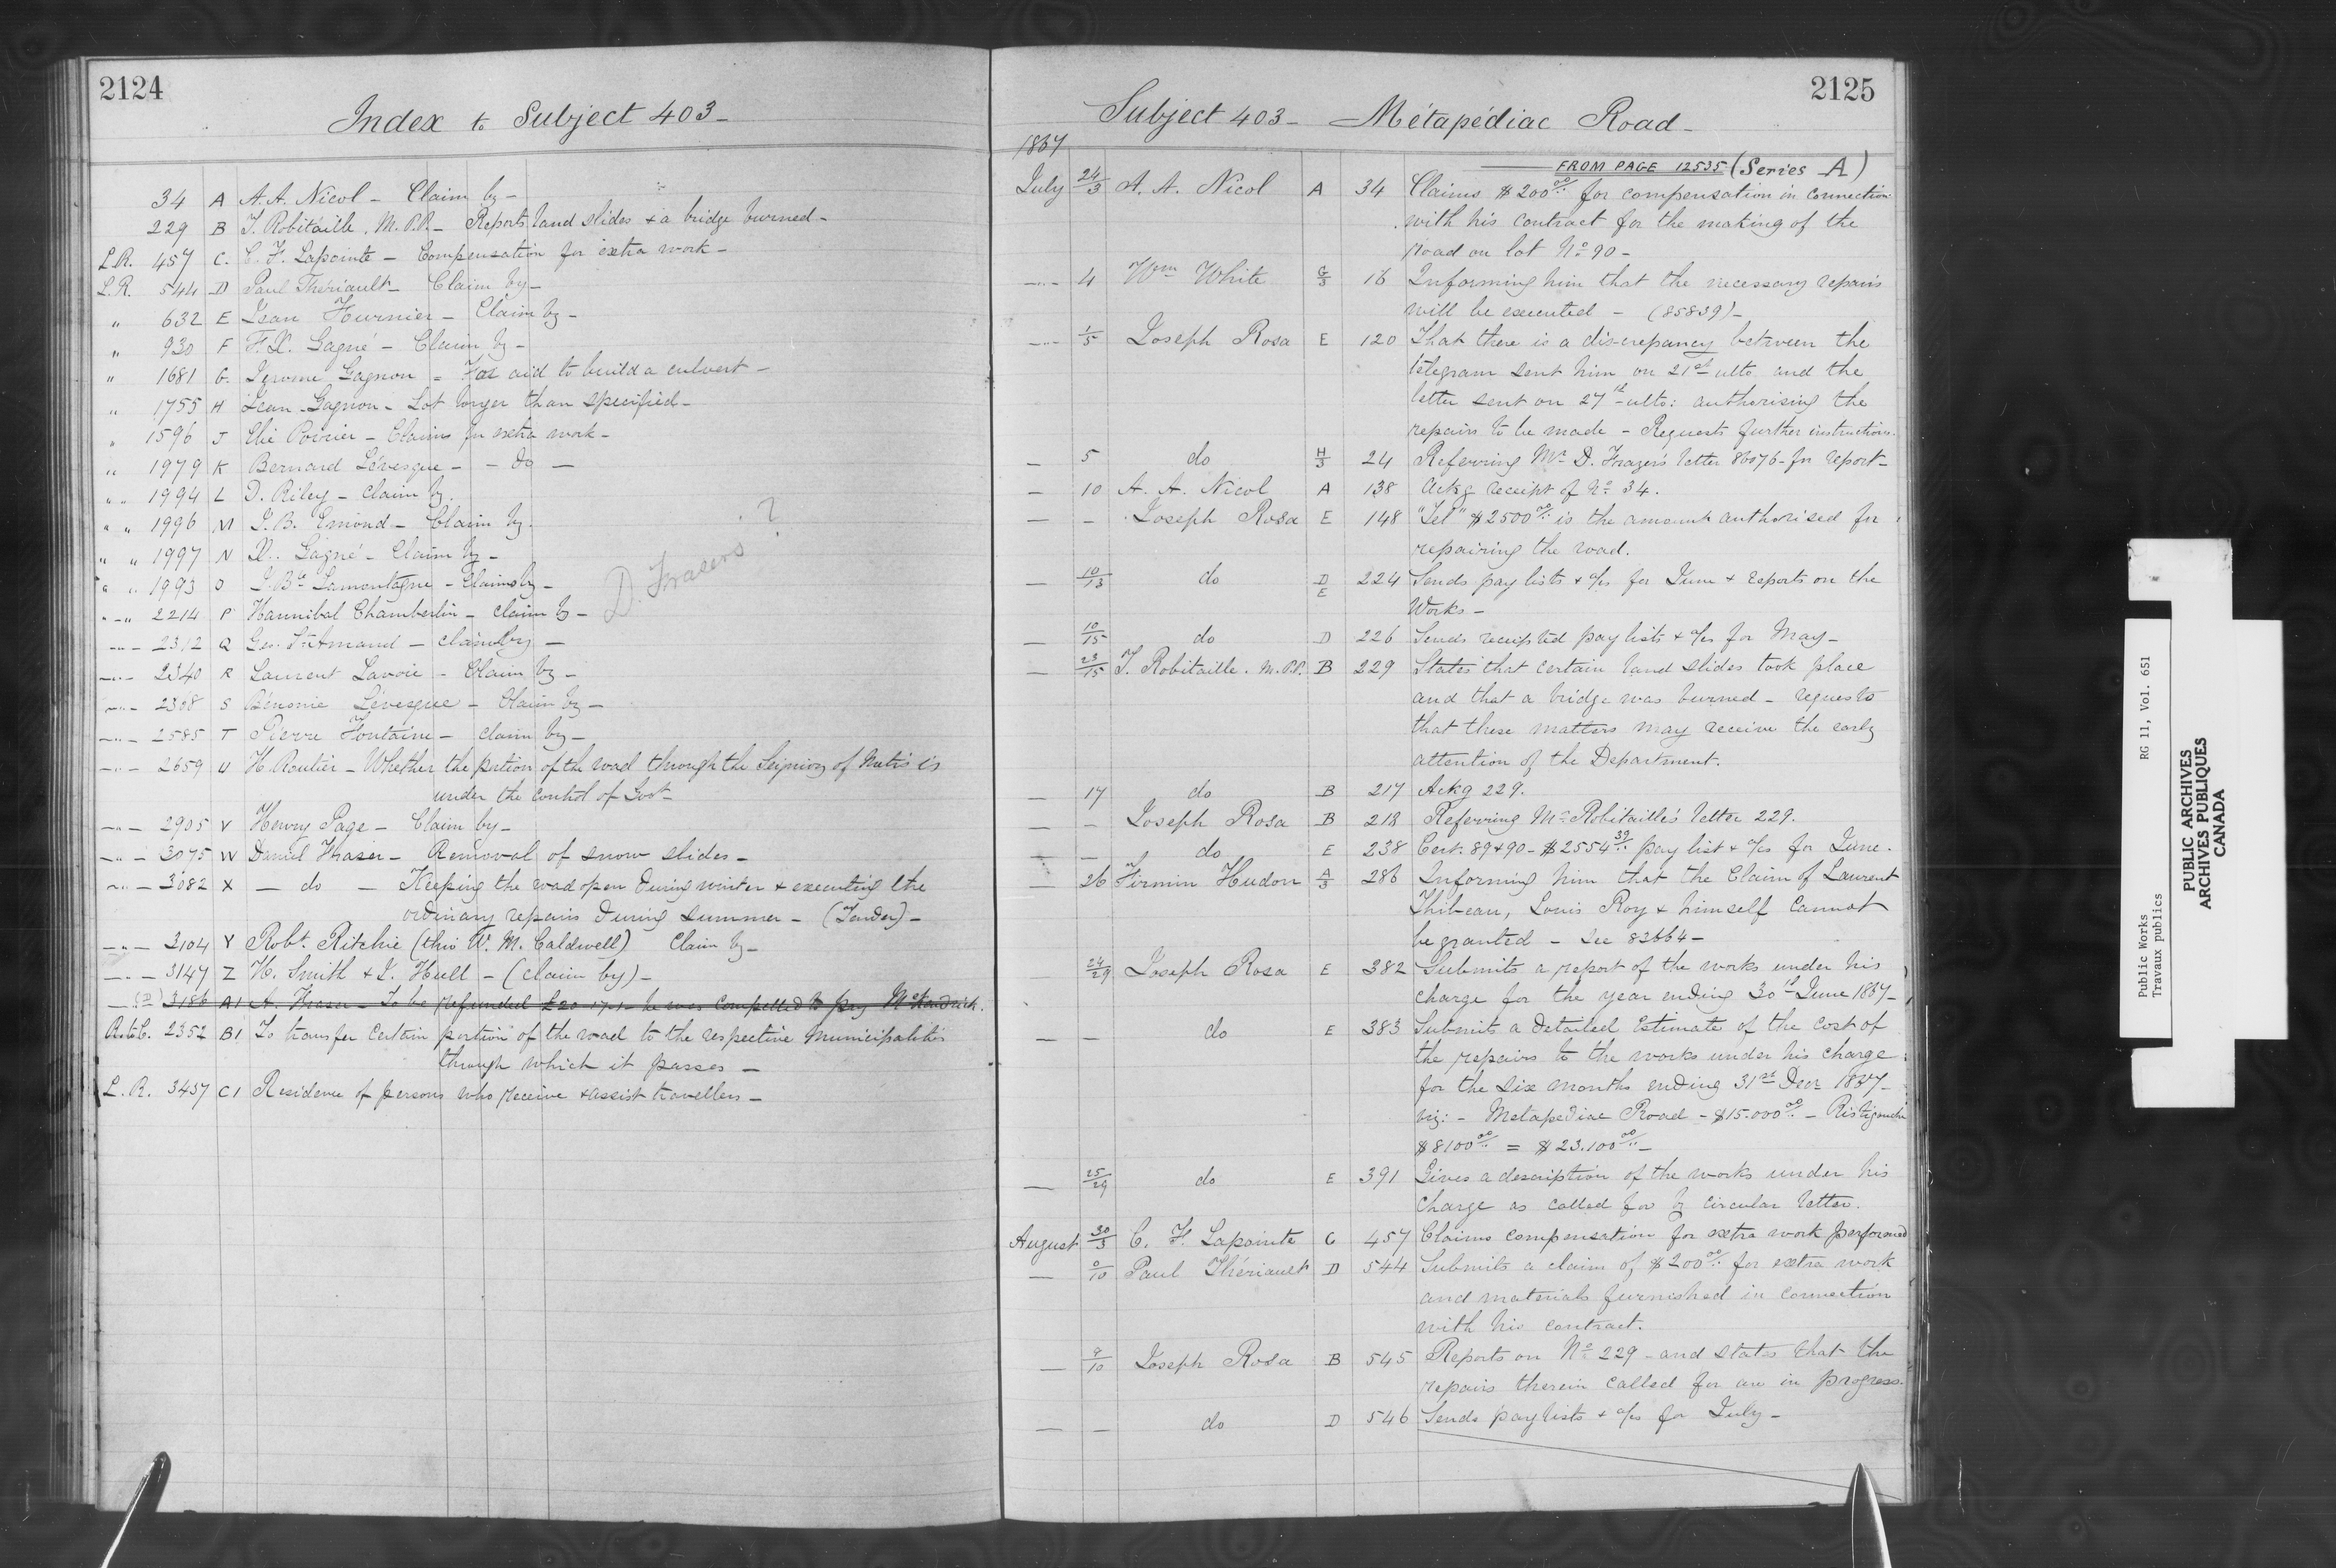 2124
Index to Subject 403-
34 A A. A. Nicol - Claim by -
229 B T. Robitaille. M.P.P. - Reports land slides & a bridge burned -
L.R. 457 C. C. F. Lapointe - Compensation for extra work -
L.R. 544 D Paul Theriault - Claim by -
" 632 E Jean Fournier - Claim by -
" 930 F F. X. Gagné - Claim by -
" 1681 G. Jerome Gagnon = For aid to build a culvert -
" 1755 H Jean Gagnon - Lot longer than specified -
" 1596 J Elie Poirier - Claims for extra work -
" 1979 K Bernard Lévesque - - do -
" " 1994 L D. Riley - Claim by.
" " 1996 M J. B. Emond - Claim by.
" " 1997 N X. Gagné - Claim by -
" " 1993 O J. Bte Lamontagne - Claims by -
D. Frasers ?
- " 2214 P Hannibal Chamberlin - Claim by -
-"- 2312 Q Geo. St Amand - Claim by -
-"- 2340 R Laurent Lavoie - Claim by -
-"- 2368 S Bénonie Lévesque - Claim by -
-"- 2585 T Pierre Fontaine - claim by -
-"- 2659 U H. Routier - Whether the portion of the road through the Seigniory of Metis is
under the control of Govt -
-"- 2905 V Henry Page - Claim by -
-"- 3075 W Daniel Fraser - Removal of snow slides -
-"- 3082 X - do - Keeping the road open during winter & executing the
ordinary repairs during summer - (Tender) -
-"- 3104 Y Robt. Ritchie (thro' W. M. Caldwell) Claim by -
-"- 3147 Z H. Smith & J. Hull - (claim by) -
3186 A1 A. Fraser - To be refunded £20 17.1 - he was compelled to pay
2352 B1 To transfer certain portion of the road to the respective Municipalities
through which it passes -
L. R. 3457 C1 Residence of persons who receive & assist travellers -
2125
Subject 403 - Métapédiac Road -
1867
FROM PAGE 12535 (Series A)
July 24/3 A. A. Nicol A 34 Claims $200 00/.. for compensation in connection
with his contract for the making of the
road on lot No 90 -
-"- 4 Wm White G/3 16 Informing him that the necessary repairs
will be executed - (85839) -
-"- 1/5 Joseph Rosa E 120 That there is a discrepancy between the
telegram sent him on 21st ulto and the
letter sent on 27th ulto: authorising the
repairs to be made - Requests further instructions.
- 5 do H/3 24 Referring Mr D. Frazer's letter 86076 - for report -
- 10 A. A. Nicol A 138 Ackg receipt of No 34.
- - Joseph Rosa E 148 "Tel" $2500 00/.. is the amount authorised for
repairing the road.
- 10/13 do D/E 224 Sends pay lists & a/cs for June & reports on the
Works -
- 10/15 do D 226 Sends receipted pay lists & a/cs for May -
- 23/15 T. Robitaille. M.P.P. B 229 States that certain land slides took place
and that a bridge was burned - requests
that these matters may receive the early
attention of the Department.
- 17 do B 217 Ackg 229.
- - Joseph Rosa B 218 Referring Mr Robitaille's letter 229.
- - do E 238 Cert. 89 & 90 - $2554 39/.. pay list & a/cs for June.
- 26 Firmin Hudon A/3 286 Informing him that the Claim of Laurent
Thibeau, Louis Roy & himself cannot
be granted - See 83664 -
24/29 Joseph Rosa E 382 Submits a report of the works under his
charge for the year ending 30th June 1867 -
- - do E 383 Submits a detailed Estimate of the cost of
the repairs to the works under his charge
for the six months ending 31st Decr 1867 -
viz: - Metapediac Road - $15.000 00/.. - Ristigouche
$8100 00/.. = $23.100 00/.. -
- 25/29 do E 391 Gives a description of the works under his
charge as called for by circular letter.
August 30/3 C. F. Lapointe C 457 Claims compensation for extra work performed
- 9/10 Paul Thériault D 544 Submits a claim of $200 00/.. for extra work
and materials furnished in connection
with his contract.
- 9/10 Joseph Rosa B 545 Reports on No 229 - and states that the
repairs therein called for are in progress.
- - do D 546 Sends pay lists & a/cs for July -
Public Works RG 11, Vol. 651
Travaux publics
PUBLIC ARCHIVES
ARCHIVES PUBLIQUES
CANADA